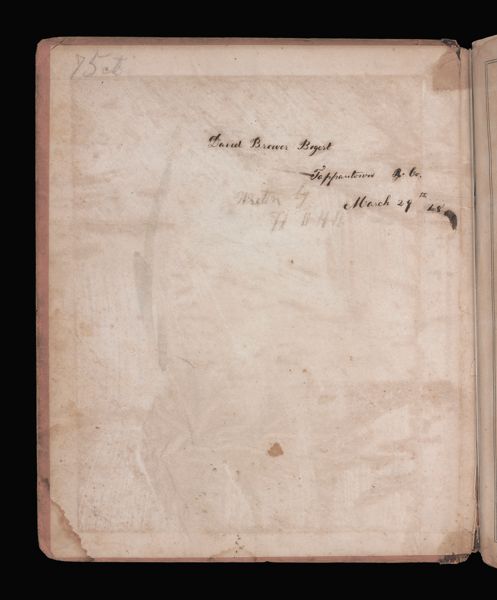 75 ct
David Brewer Bogert
Tappantown R. Co.
Written by
March 29th